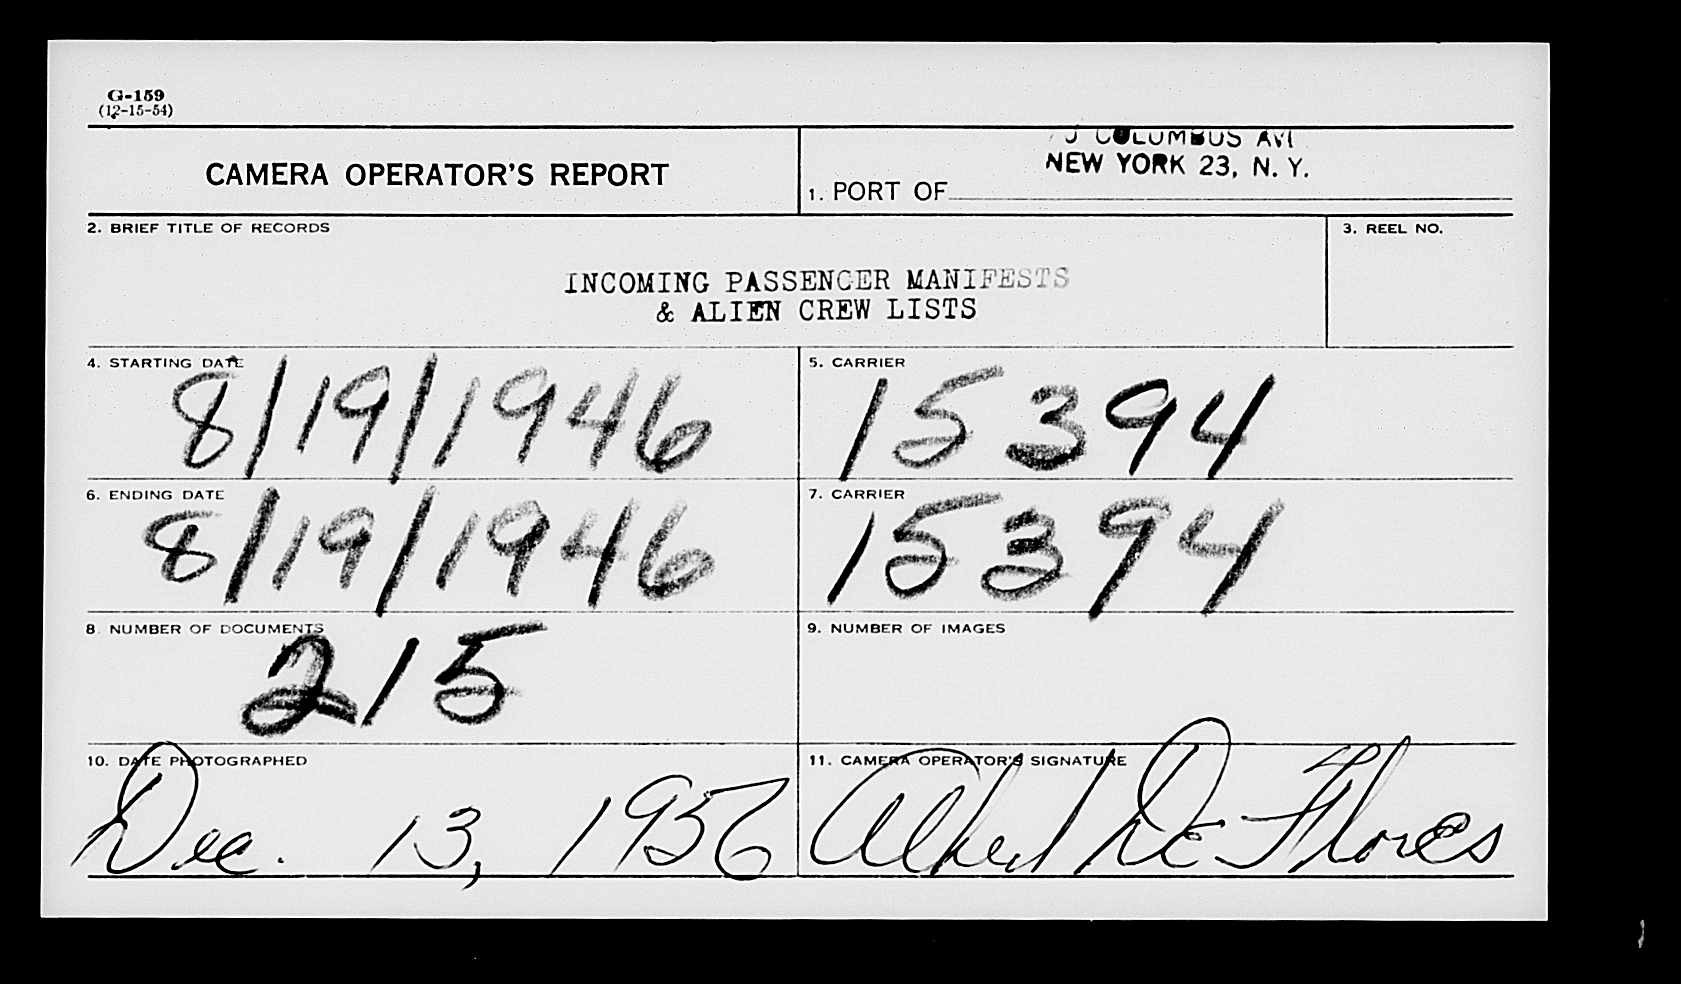 G-159
(12-15-54)
CAMERA OPERATOR'S REPORT
COLUMBUS
NEW YORK 23, N. Y.
1. PORT OF
2. BRIEF TITLE OF RECORDS
3. REEL NO.
INCOMING PASSENGER MANIFESTS
& ALIEN CREW LISTS
4. STARTING DATE
8/19/1946
5. CARRIER
15394
6. ENDING DATE
8/19/1946
7. CARRIER
15394
8. NUMBER OF DOCUMENTS
215
9. NUMBER OF IMAGES
10. DATE PHOTOGRAPHED
Dec. 13, 1956
11. CAMERA OPERATOR'S SIGNATURE
Albert De Flores